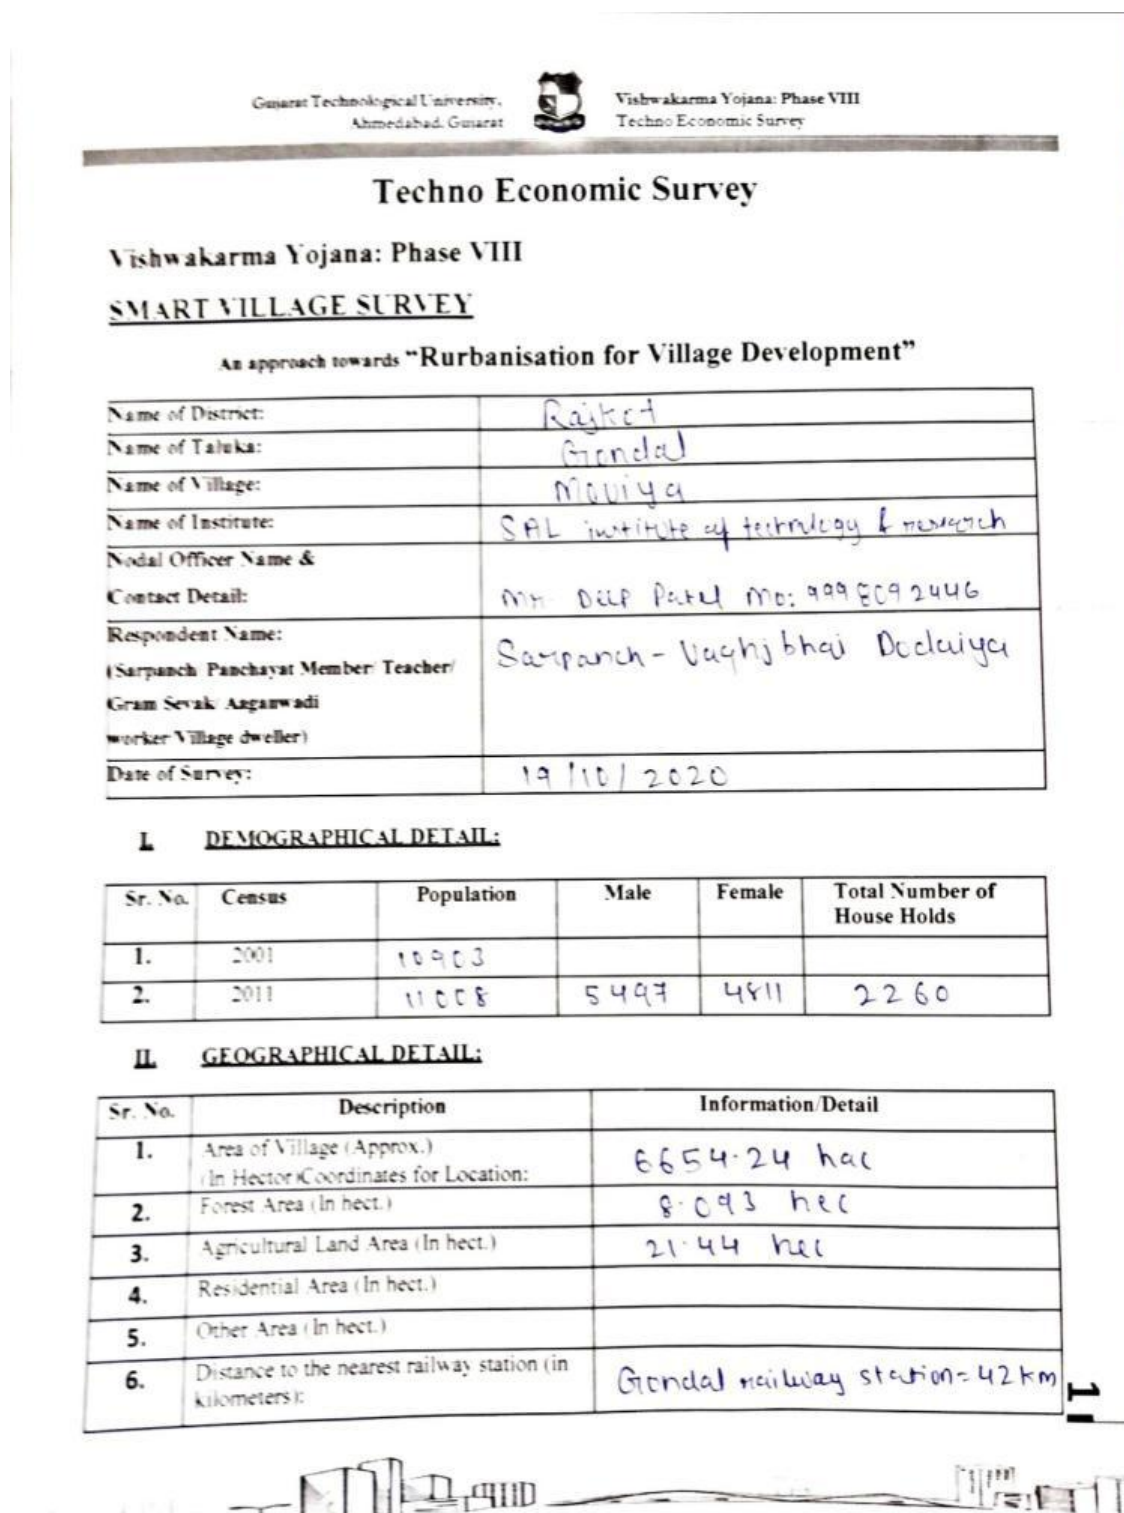 Gujarat Technological University, Vishwakarma Yojana: Phase VIII
Ahmedabad, Gujarat Techno Economic Survey
Techno Economic Survey
Vishwakarma Yojana: Phase VIII
SMART VILLAGE SURVEY
An approach towards “Rurbanisation for Village Development”
Name of District: Rajkot
Name of Taluka: Gondal
Name of Village: Moviya
Name of Institute: SAL institute of technology & research
Nodal Officer Name &
Contact Detail: Mr. Deep Patel Mo: 9998092446
Respondent Name: Sarpanch - Vaghjibhai Dodaiya
(Sarpanch/ Panchayat Member/ Teacher/
Gram Sevak/ Aaganwadi
worker/Village dweller)
Date of Survey: 19/10/2020
I. DEMOGRAPHICAL DETAIL:
Sr. No. Census Population Male Female Total Number of
House Holds
1. 2001 10903
2. 2011 11008 5497 4811 2260
II. GEOGRAPHICAL DETAIL:
Sr. No. Description Information/Detail
1. Area of Village (Approx.) 6654.24 hac
(In Hector)Coordinates for Location:
2. Forest Area (In hect.) 8.093 hec
3. Agricultural Land Area (In hect.) 21.44 hec
4. Residential Area (In hect.)
5. Other Area (In hect.)
6. Distance to the nearest railway station (in Gondal railway station = 42 km
kilometers):